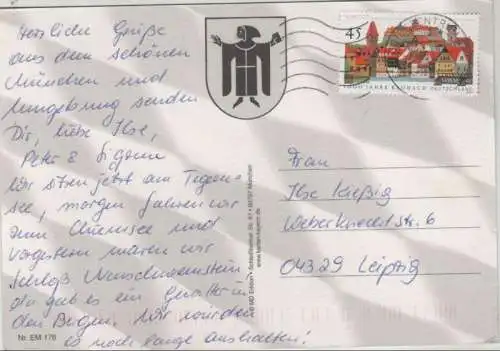 Herzliche Grüße
aus dem schönen
München und
Umgebung senden
Dir, liebe Ilse,
Peter &
Wir sitzen jetzt am Tegern-
see, morgen fahren wir
zum Chiemsee und
vorgestern waren wir
Schloß Neuschwanstein
da gab es ein Gewitter in
den Bergen. Wir würden
es noch lange aushalten!
Nr. EM 178
www.kartex-bayern.de
45
1000 JAHRE KRONACH DEUTSCHLAND
ENTR
Frau
Ilse Kießig
Weberknechtstr. 6
04329 Leipzig